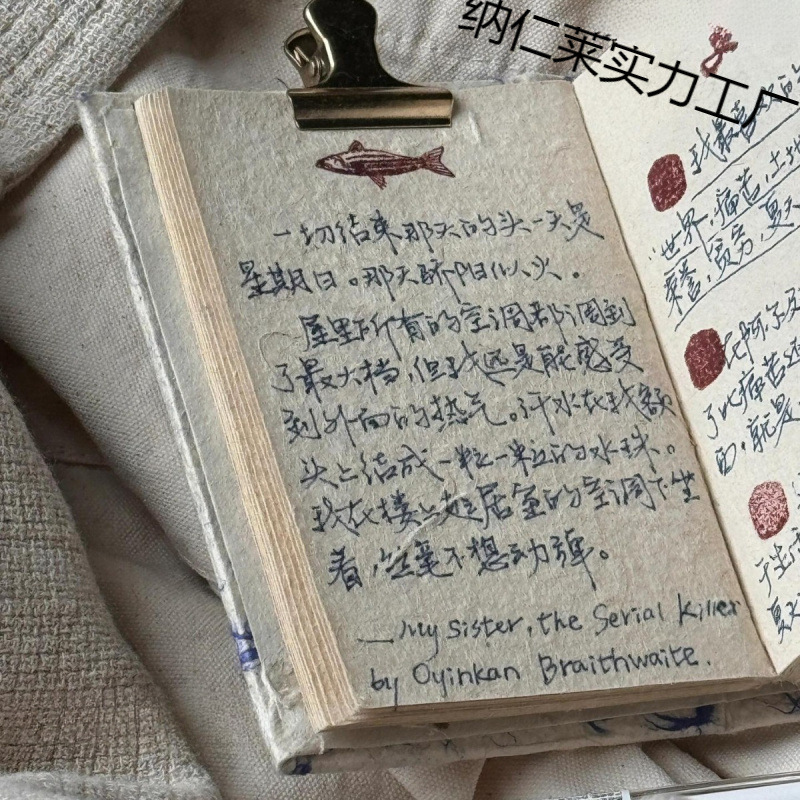 纳仁莱实力工厂
一切结束那天的头一天是
星期日。那天骄阳似火。
屋里所有的空调都调到
了最大档，但我还是能感受
到外面的热气。汗水在我额
头上结成一粒一粒的水珠。
我在楼上起居室的空调下坐
着，丝毫不想动弹。
—My sister, the Serial Killer
by Oyinkan Braithwaite.
我最喜欢的
"世界，痛苦，土地
荣誉，贫穷，夏天
了比痛苦还
面，就是
于生
夏天